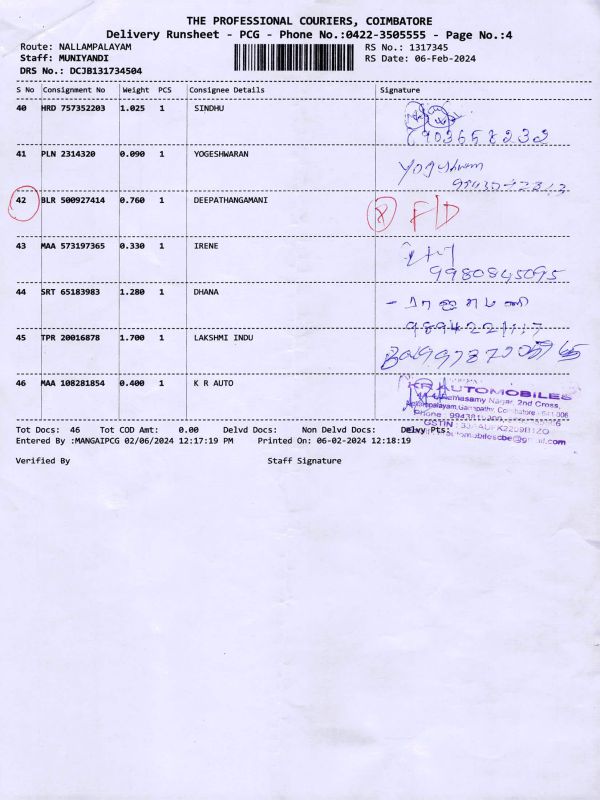 THE PROFESSIONAL COURIERS, COIMBATORE
Delivery Runsheet - PCG - Phone No.:0422-3505555 - Page No.:4
Route: NALLAMPALAYAM RS No.: 1317345
Staff: MUNIYANDI RS Date: 06-Feb-2024
DRS No.: DCJB131734504
S No Consignment No Weight PCS Consignee Details Signature
40 HRD 757352203 1.025 1 SINDHU
41 PLN 2314320 0.090 1 YOGESHWARAN
42 BLR 500927414 0.760 1 DEEPATHANGAMANI F/D
43 MAA 573197365 0.330 1 IRENE
9980845095
44 SRT 65183983 1.280 1 DHANA
45 TPR 20016878 1.700 1 LAKSHMI INDU
46 MAA 108281854 0.400 1 K R AUTO
KR AUTOMOBILES
Nagar, 2nd Cross,
Phone
GSTIN
Tot Docs: 46 Tot COD Amt: 0.00 Delvd Docs: Non Delvd Docs: Delvy Pts:
Entered By :MANGAIPCG 02/06/2024 12:17:19 PM Printed On: 06-02-2024 12:18:19
Verified By Staff Signature